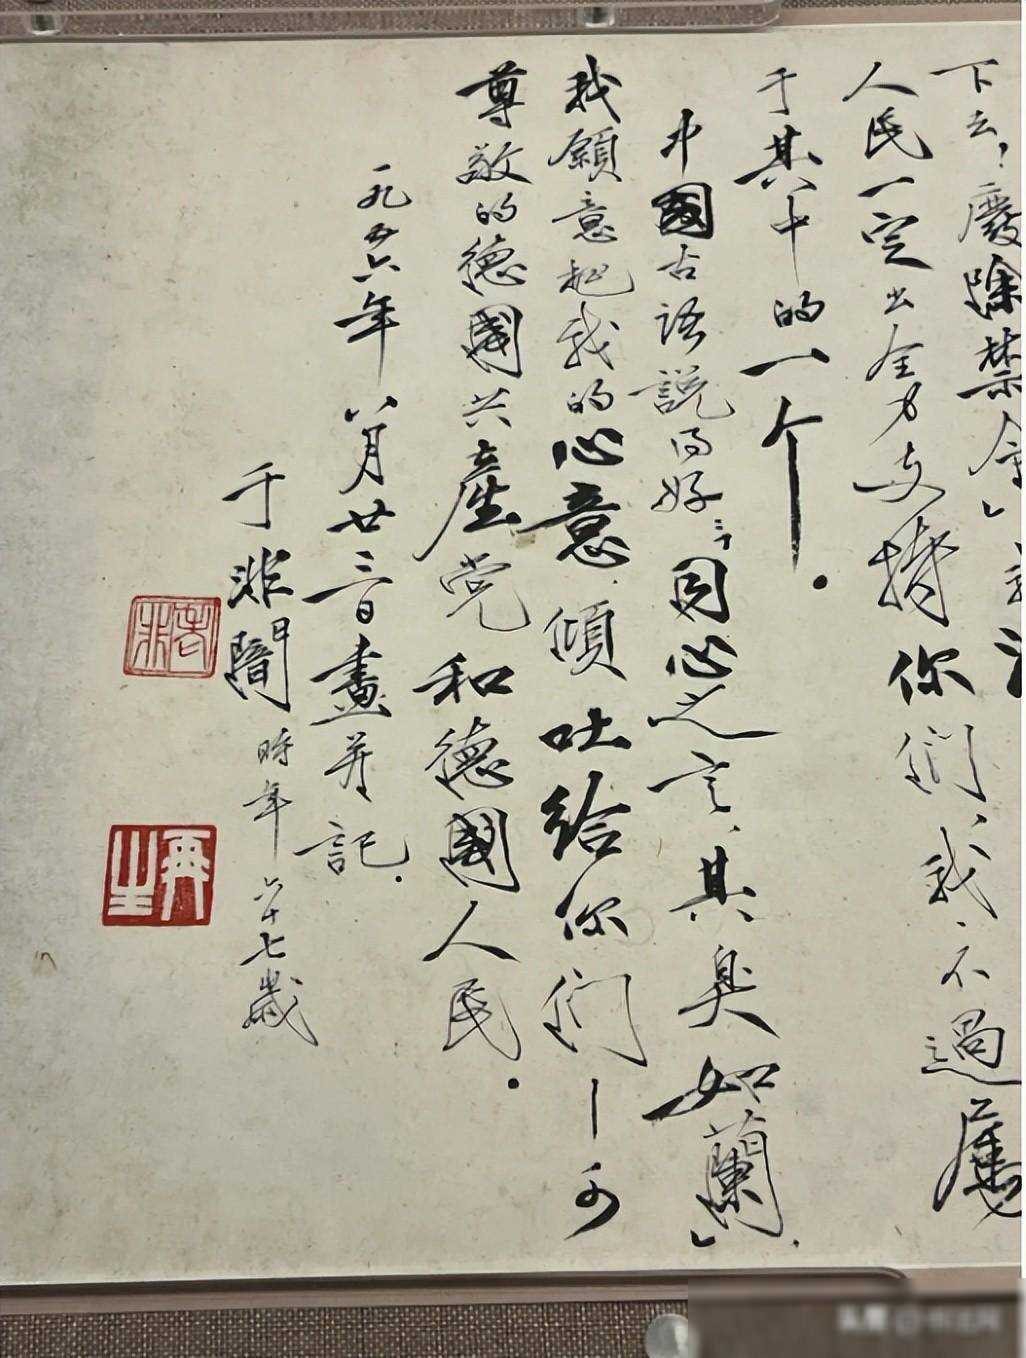 下去！廢除禁令」
人民一定出全力支持你們、我、不過屬
于其中的一个．
中國古語說的好：「同心之言、其臭如蘭」．
我願意把我的心意、傾吐給你們——
尊敬的德國共產党和德國人民．
一九五六年八月廿三日畫并記．
于非闇時年六十七歲
老非
再生